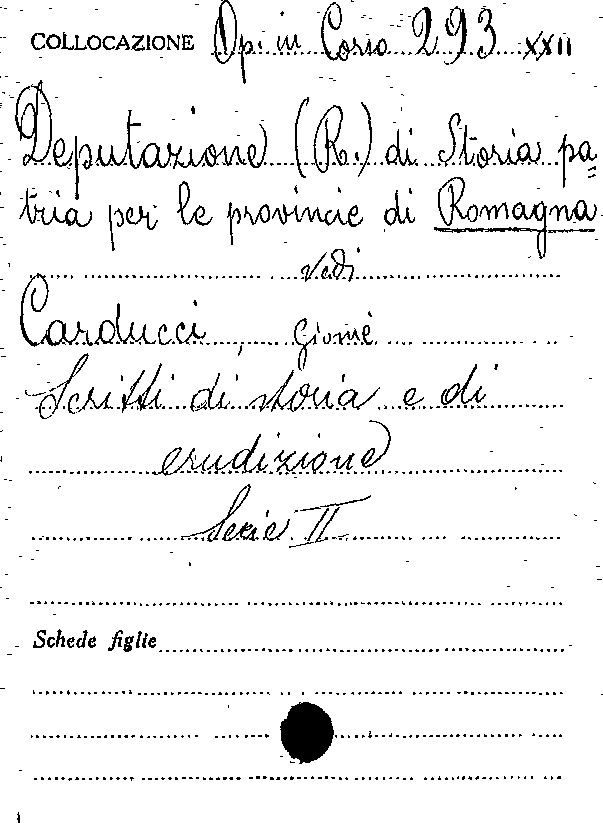 COLLOCAZIONE Op. in Corso 293 XXII
Deputazione (R.) di Storia pa=
tria per le provincie di Romagna
vedi
Carducci, Giosuè
Scritti di storia e di
erudizione
Serie II
Schede figlie